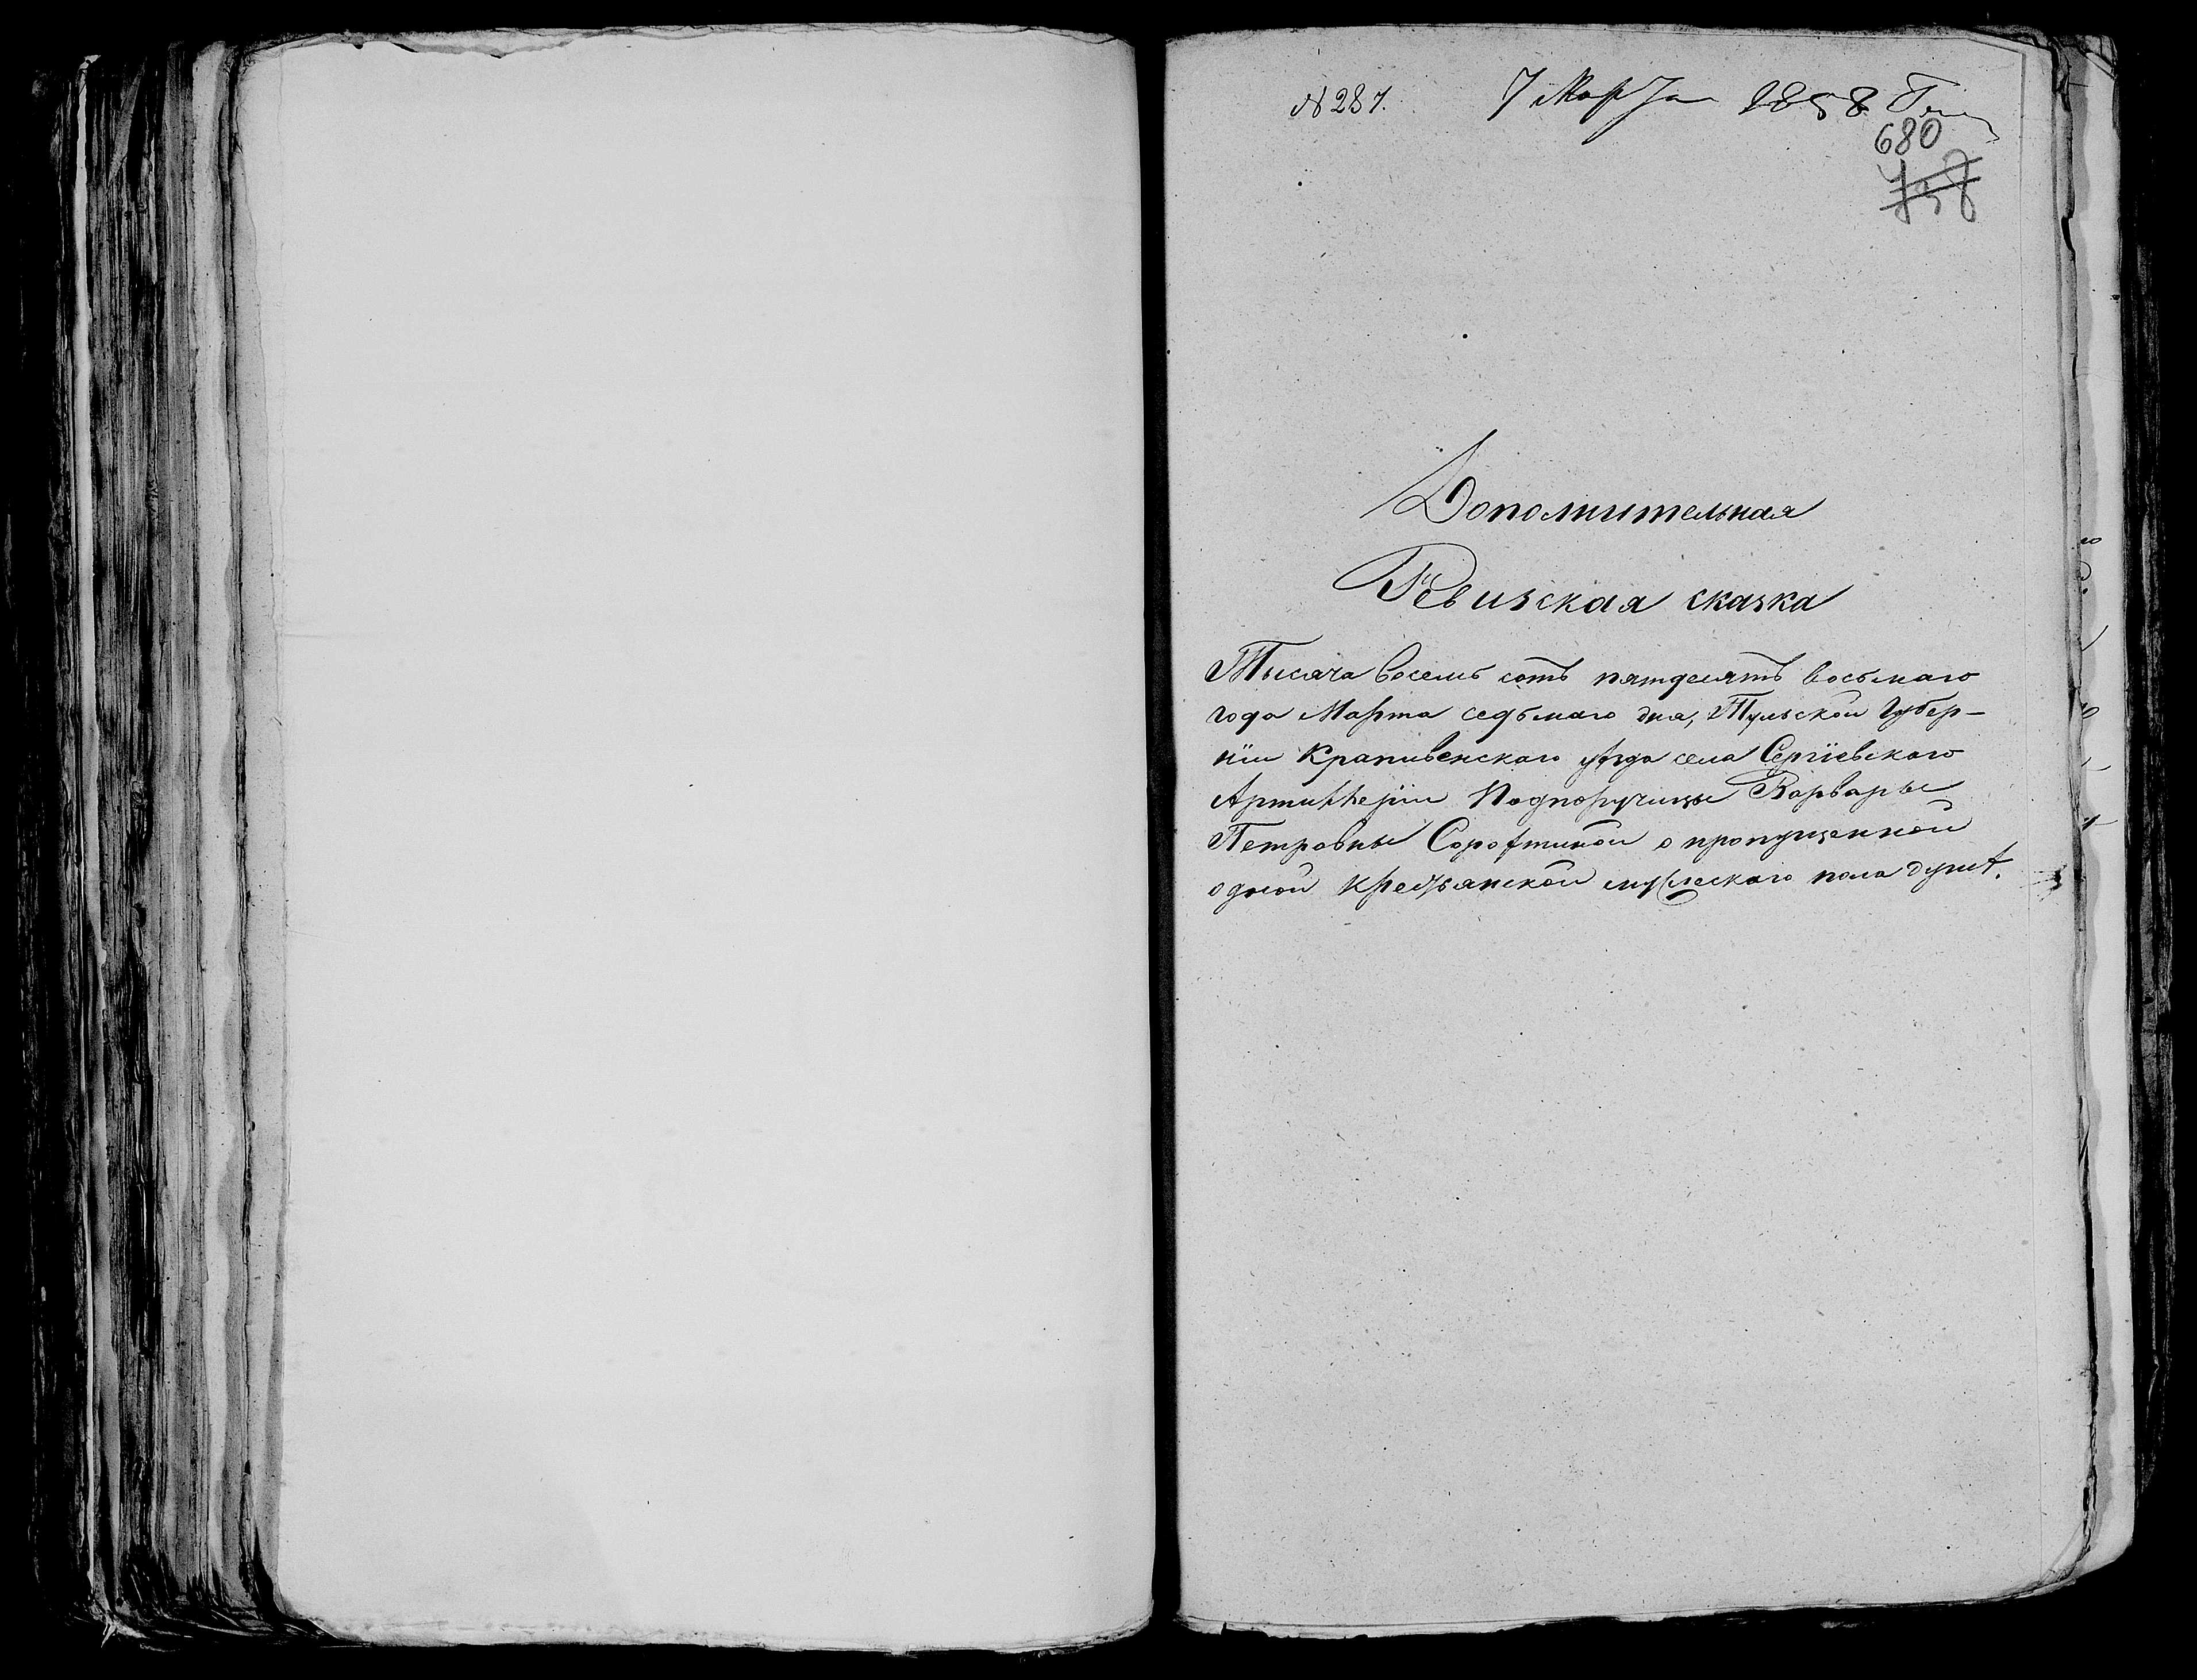 № 287. 7 Марта 1858 Года
680
Дополнительная
Ревизская сказка
Тысяча восемь сотъ пятдесятъ восьмаго
года Марта седьмаго дня, Тульской Губер-
ніи Крапивенскаго уѣзда села Сергіевскаго
Артиллеріи Подпоручицы Варвары
Петровны о пропущенной
одной крестьянской мужескаго пола душѣ.